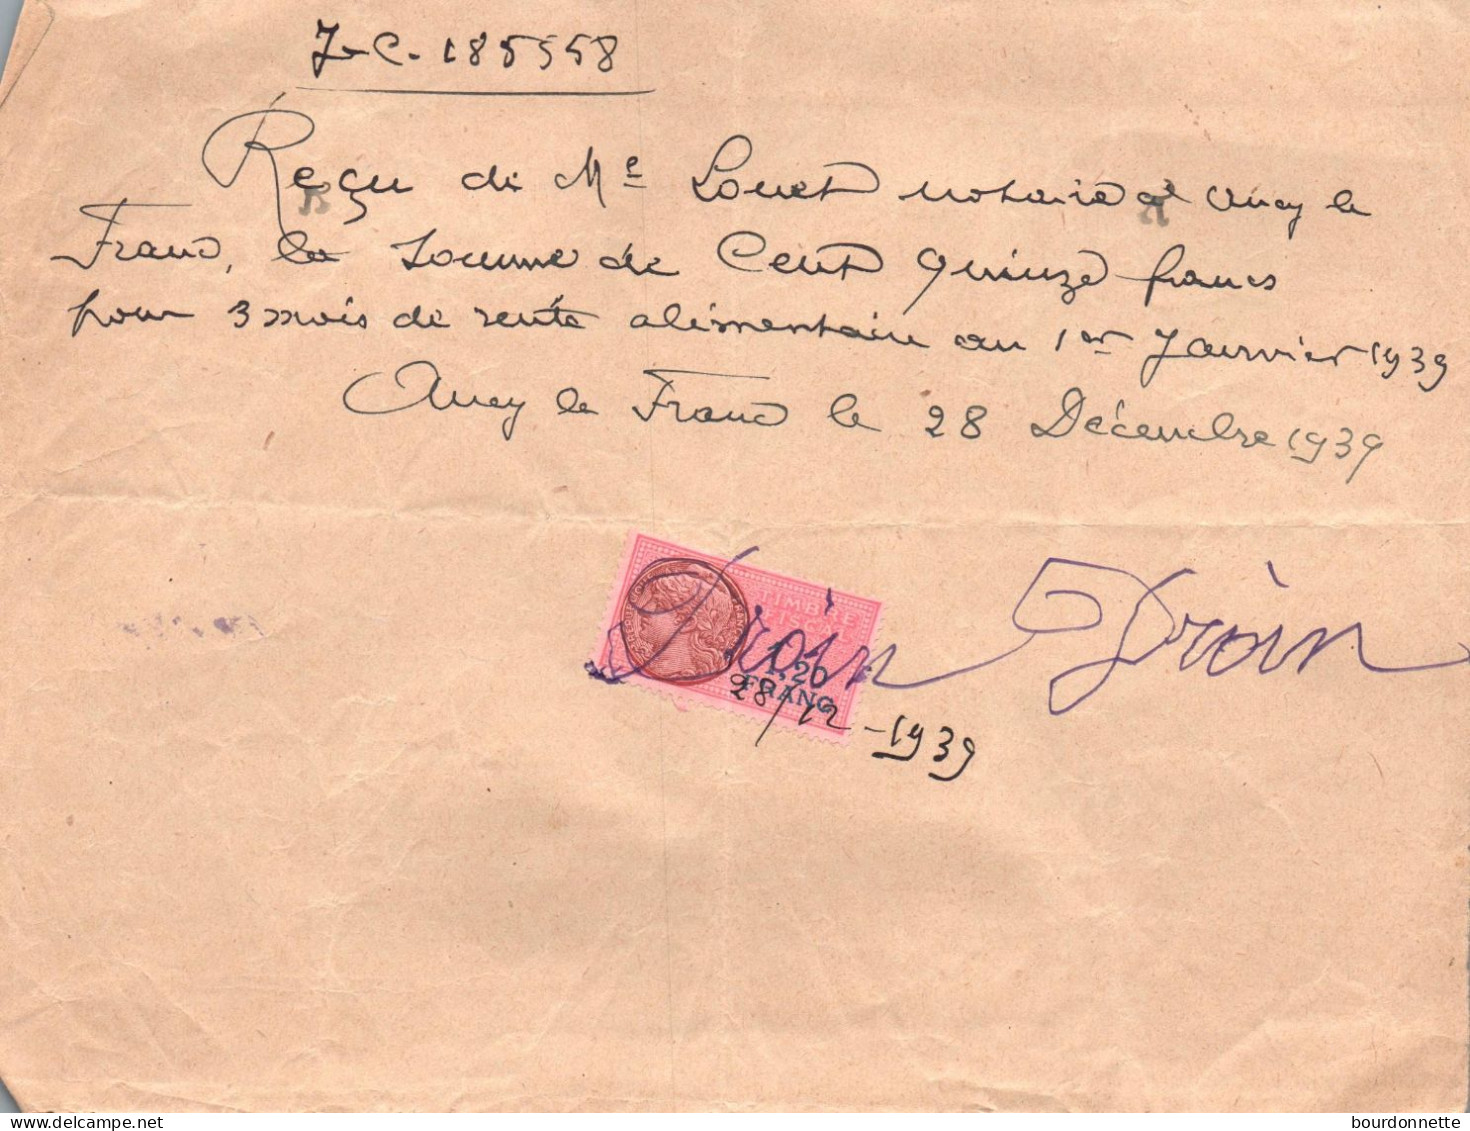 J-C. 185558
Reçu de Me Louet notaire à Ancy le
Franc, la somme de Cent quinze francs
pour 3 mois de rente alimentaire au 1er Janvier 1939
Ancy le Franc le 28 Décembre 1939
TIMBRE
FISCAL
1,20
FRANC
Droin Droin
28/12-1939
bourdonnette